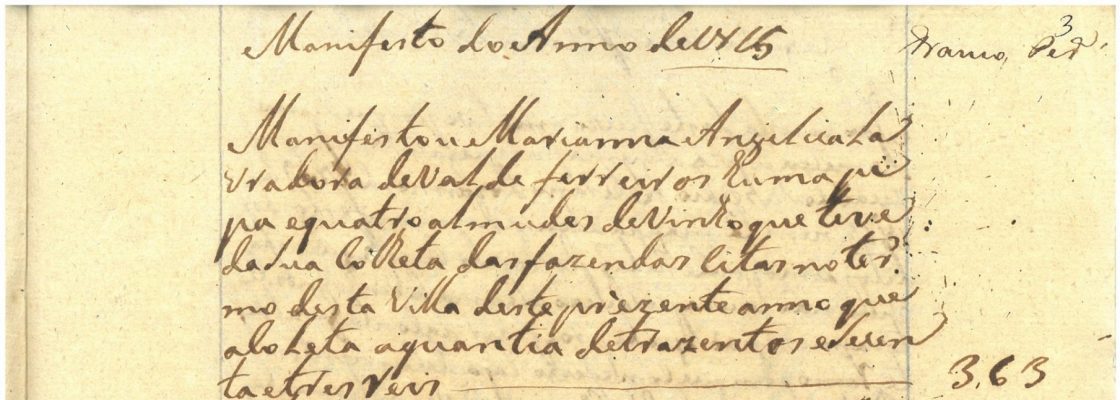 Manifesto do Anno de 1815
3
Manifestou Marianna Angelica La
vradora de Val de ferreiros huma pi
pa e quatro almudes de vinho que teve
da sua Colheta das fazendas Citas no ter
mo desta Villa deste prezente anno que
aloheta a quantia de trazentos e secen
ta e tres reis
363